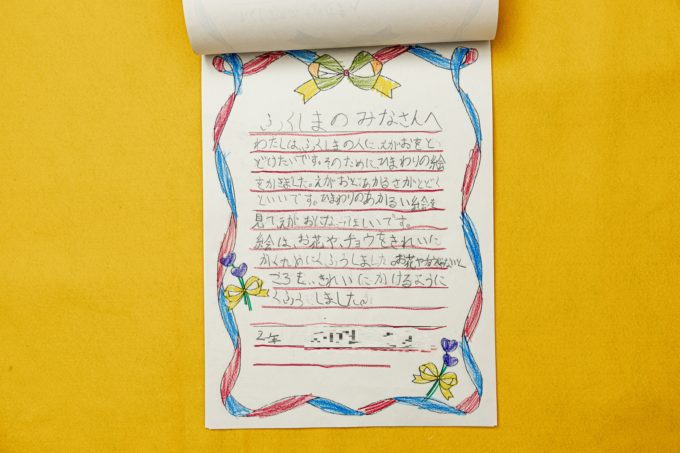 ふくしまの みなさんへ
わたしは、ふくしまの人に えがおをと
どけたいです。そのためにひまわりの絵
をかきました。えがおとあかるさがとどく
といいです。ひまわりのあかるい絵を
見てえがおになってほしいです。
絵は、お花や、チョウをきれいに
かくためにくふうしました。お花や
ころも、きれいにかけるように
くふうしました。
2年